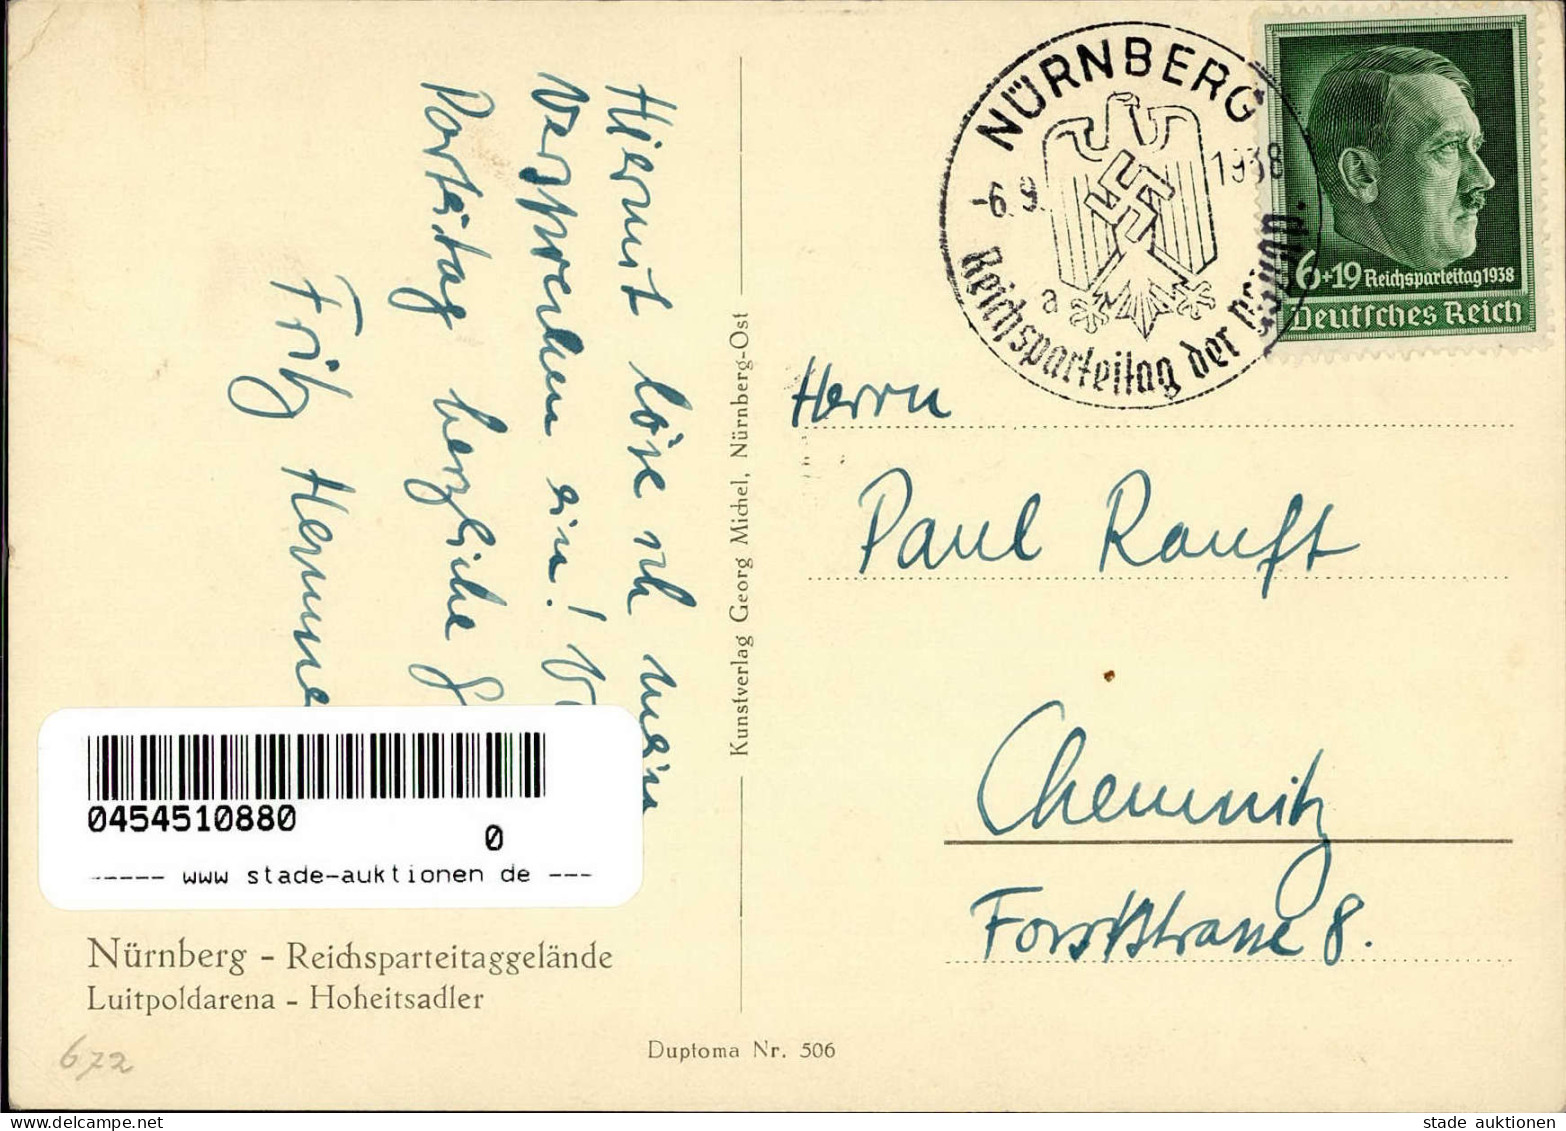 NÜRNBERG
-6.9. 1938
a
Reichsparteitag der NSDAP.
6+19 Reichsparteitag 1938
Deutsches Reich
Hiermit löse ich mein
Versprechen ein! V
Parteitag herzliche G
Fritz Hemme
Kunstverlag Georg Michel, Nürnberg-Ost
Herrn
Paul Ranft
Chemnitz
Forststrasse 8.
0454510880
0
----- www stade-auktionen de ---
Nürnberg - Reichsparteitaggelände
Luitpoldarena - Hoheitsadler
672
Duptoma Nr. 506
stade auktionen